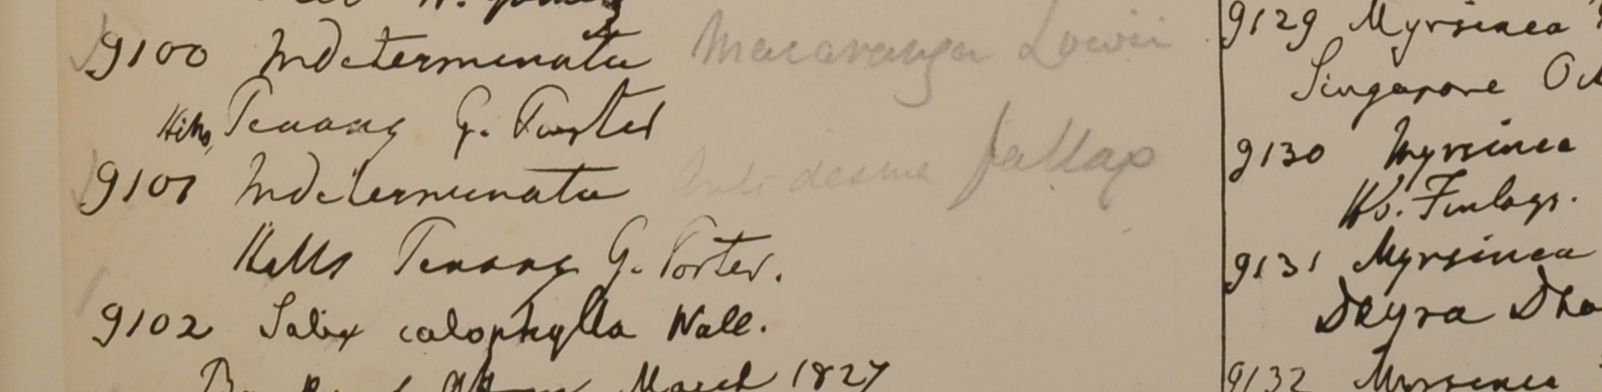 9100 Indeterminata Macaranga Lowii
Hills, Penang G. Porter
9101 Indeterminata Antidesma fallax
Hills Penang G. Porter.
9102 Salix calophylla Wall.
March 1827
9129 Myrsinea
Singapore
9130 Myrsinea
Hb. Finlays.
9131 Myrsinea
Deyra
9132 Myrsinea